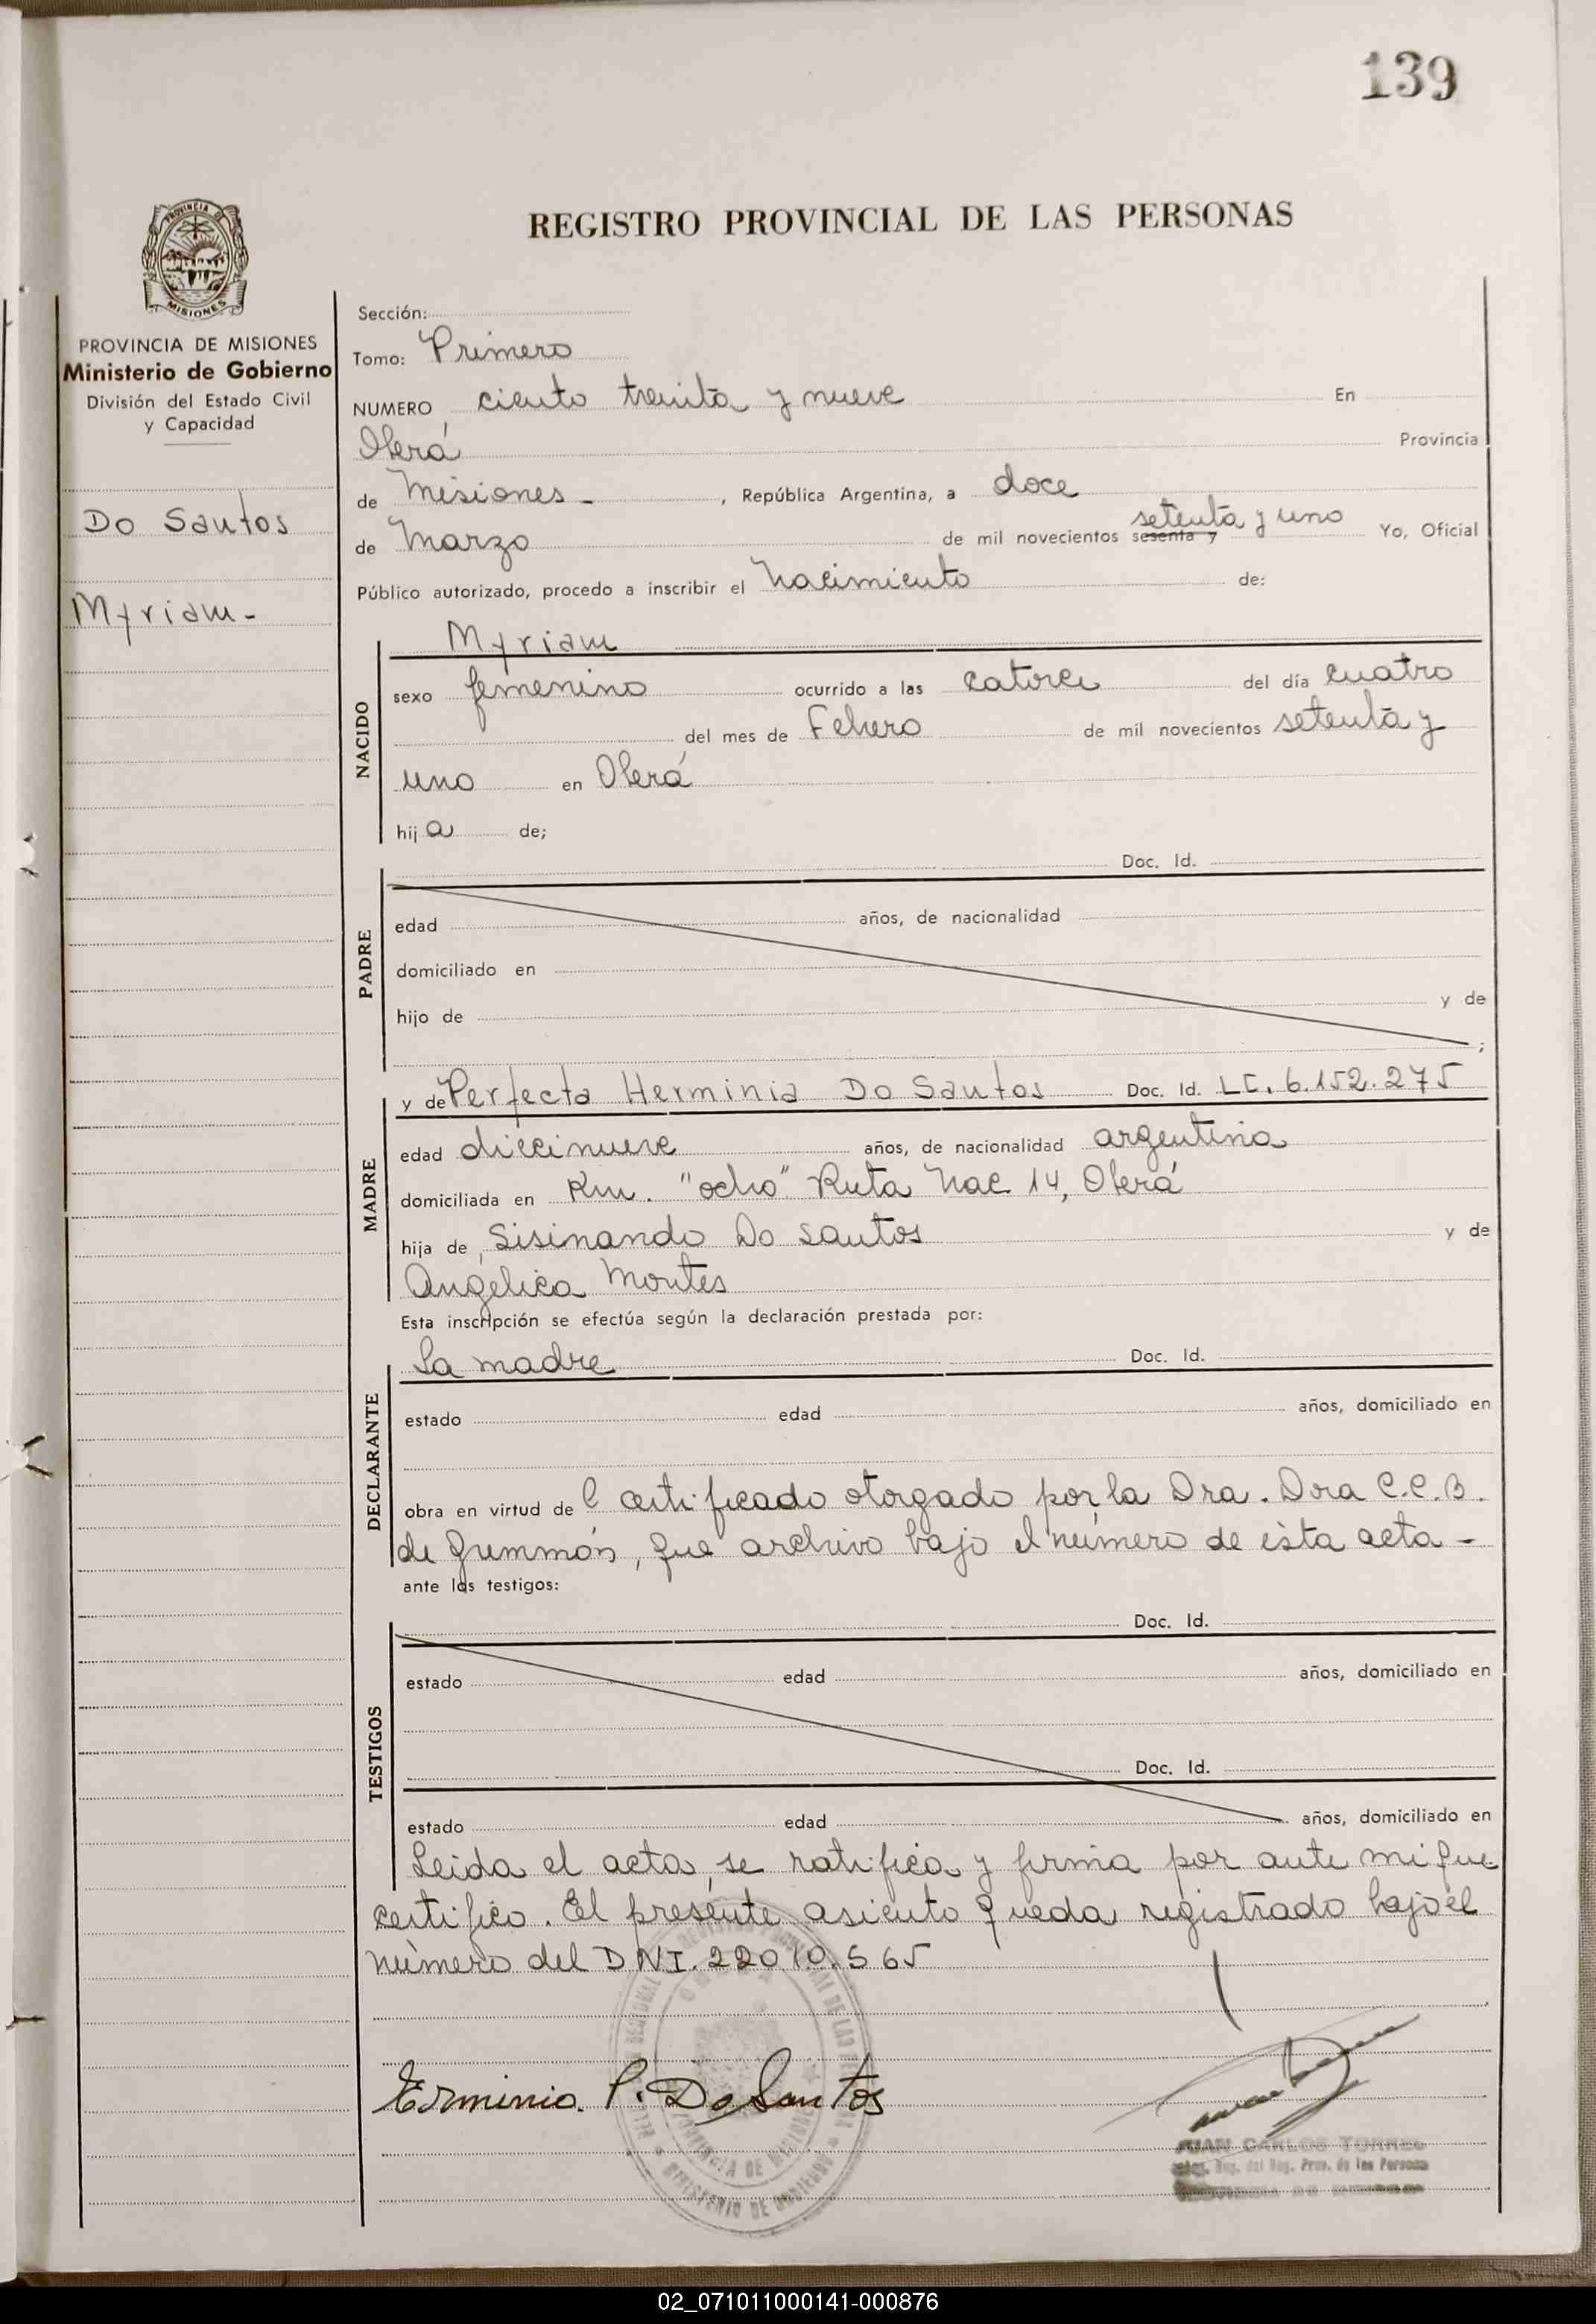 139
REGISTRO PROVINCIAL DE LAS PERSONAS
PROVINCIA DE
MISIONES
PROVINCIA DE MISIONES
Ministerio de Gobierno
División del Estado Civil
y Capacidad
Do Santos
Myriam-
Sección:
Tomo: Primero
NUMERO ciento treinta y nueve En
Oberá Provincia
de Misiones - , República Argentina, a doce
de Marzo de mil novecientos sesenta y setenta y uno Yo, Oficial
Público autorizado, procedo a inscribir el Nacimiento de:
NACIDO
Myriam
sexo femenino ocurrido a las catorce del día cuatro
del mes de Febrero de mil novecientos setenta y
uno en Oberá
hija de;
PADRE
Doc. Id.
edad años, de nacionalidad
domiciliado en
hijo de y de
;
MADRE
y de Perfecta Herminia Do Santos Doc. Id. LC. 6.152.275
edad diecinueve años, de nacionalidad argentina
domiciliada en Km. "ocho" Ruta Nac. 14, Oberá
hija de Sisinando Do Santos y de
Angélica Montes
Esta inscripción se efectúa según la declaración prestada por:
DECLARANTE
La madre Doc. Id.
estado edad años, domiciliado en
obra en virtud del certificado otorgado por la Dra. Dora C.C.B.
de que archivo bajo el número de ésta acta -
ante los testigos:
TESTIGOS
Doc. Id.
estado edad años, domiciliado en
Doc. Id.
estado edad años, domiciliado en
Leida el acta, se ratifica y firma por ante mi que
certifico. El presente asiento queda registrado bajo el
número del DNI. 22010.565
Erminia P. Do Santos
JUAN CARLOS TORRES
Reg. del Reg. Prov. de las Personas
02_071011000141-000876